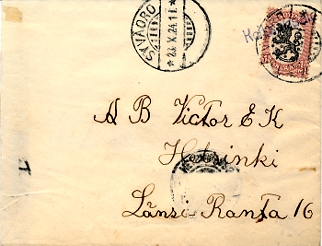 SYVÄORO
* 23. X. 24. 11. *
A B Victor E K
Helsinki
Länsi-Ranta 16